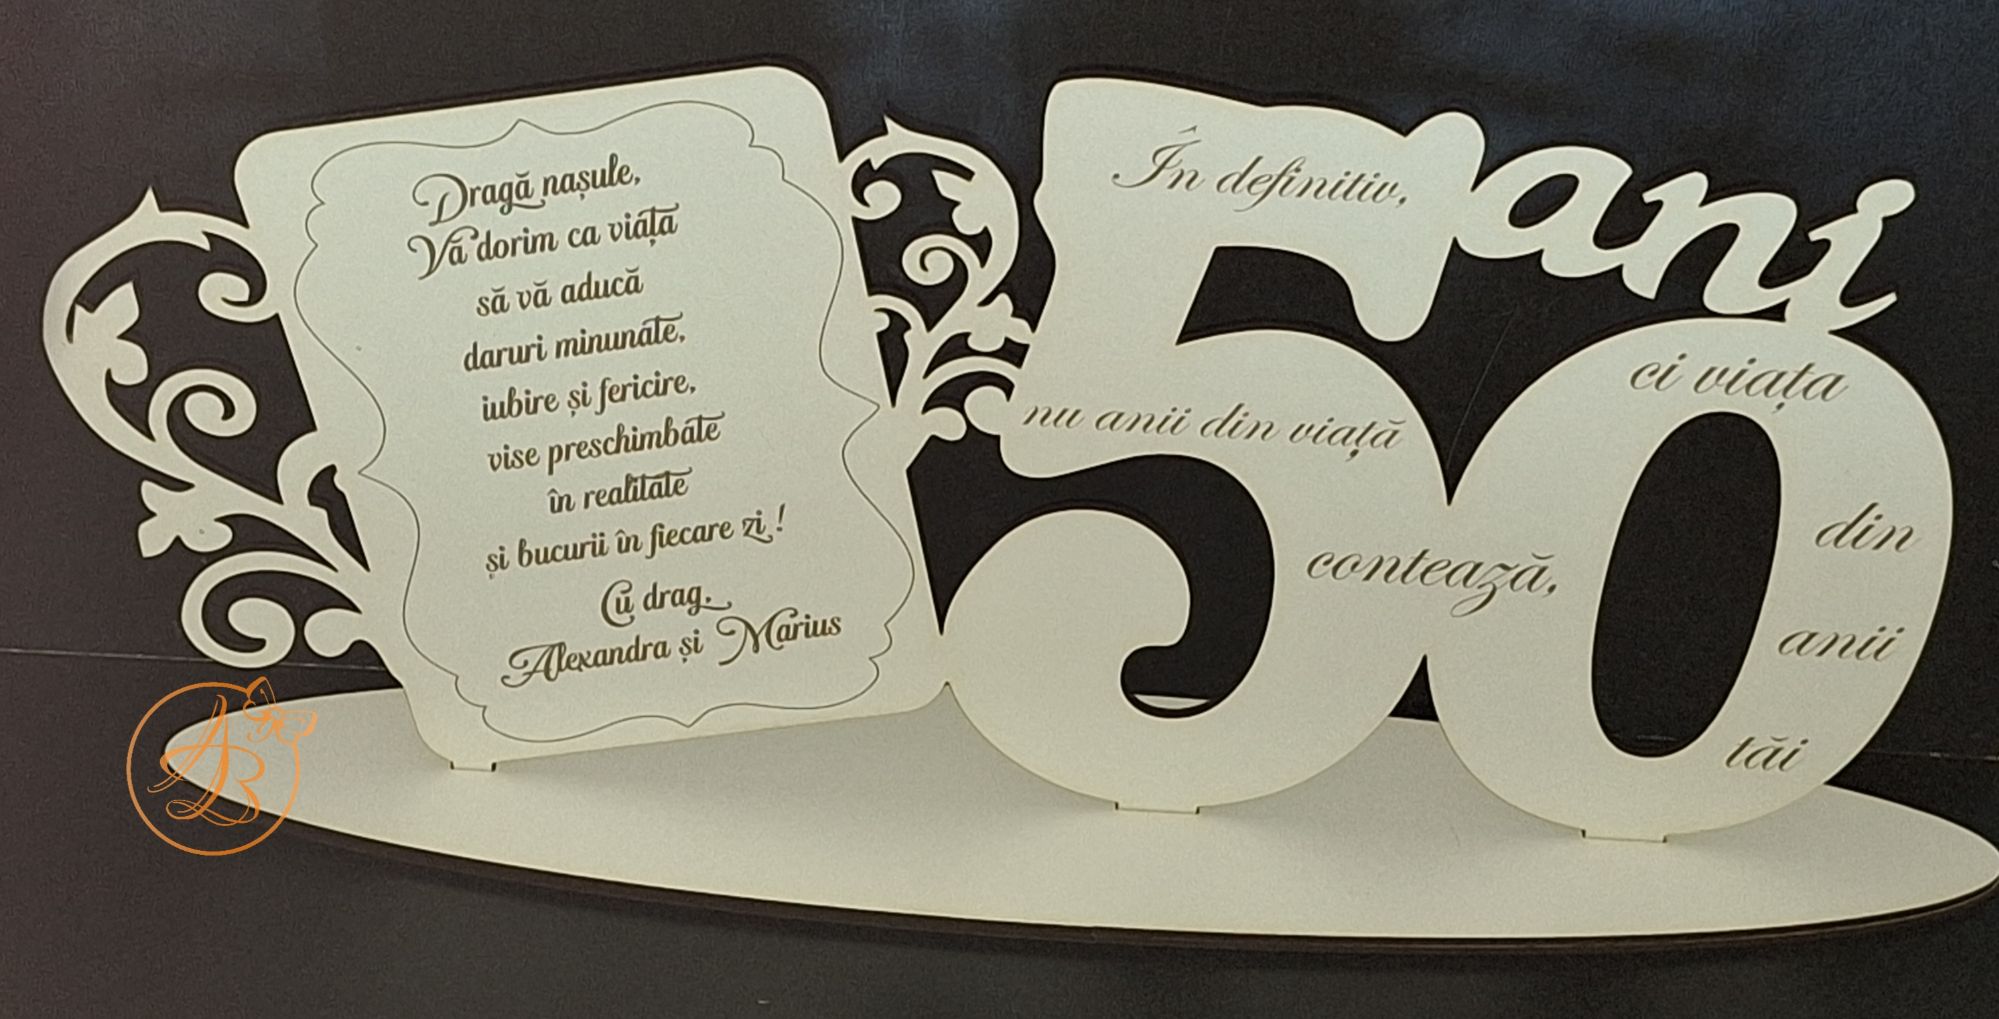 Dragă nașule,
Vă dorim ca viața
să vă aducă
daruri minunate,
iubire și fericire,
vise preschimbate
în realitate
și bucurii în fiecare zi !
Cu drag,
Alexandra și Marius
50 ani
În definitiv,
nu anii din viață
contează,
ci viața
din
anii
tăi